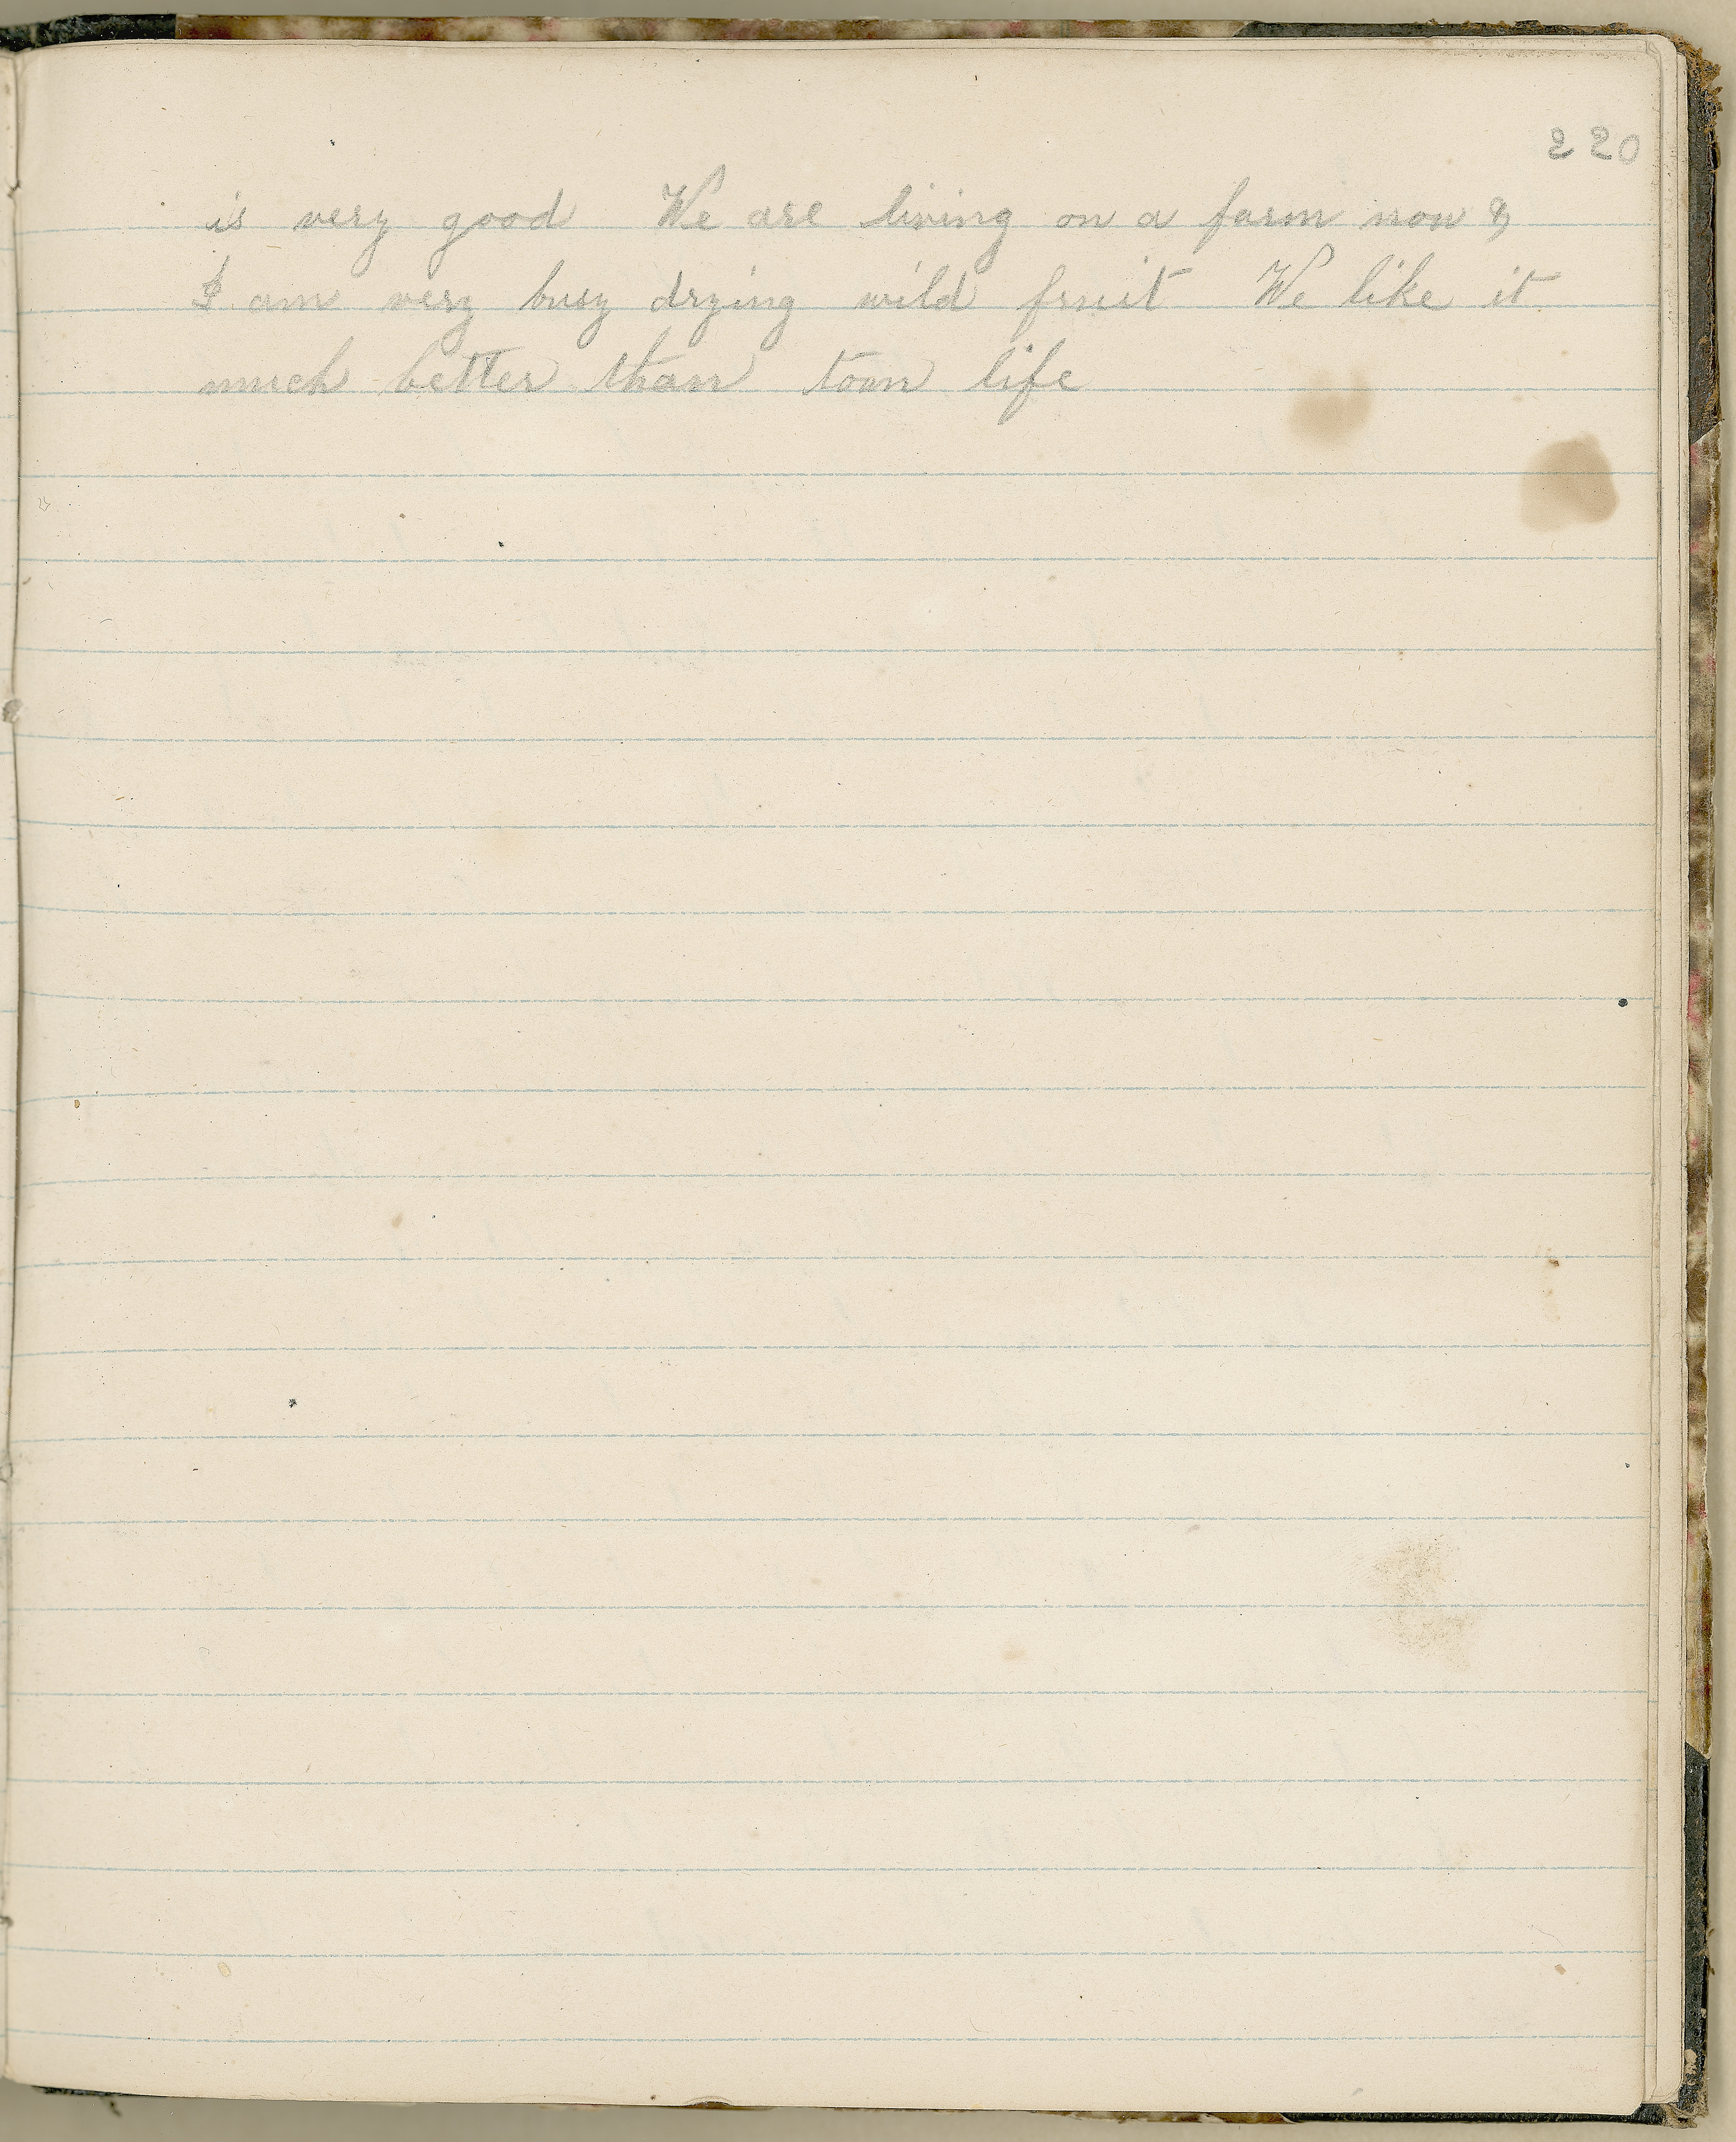 220
is very good We are living on a farm now &
I am very busy drying wild fruit We like it
much better than town life